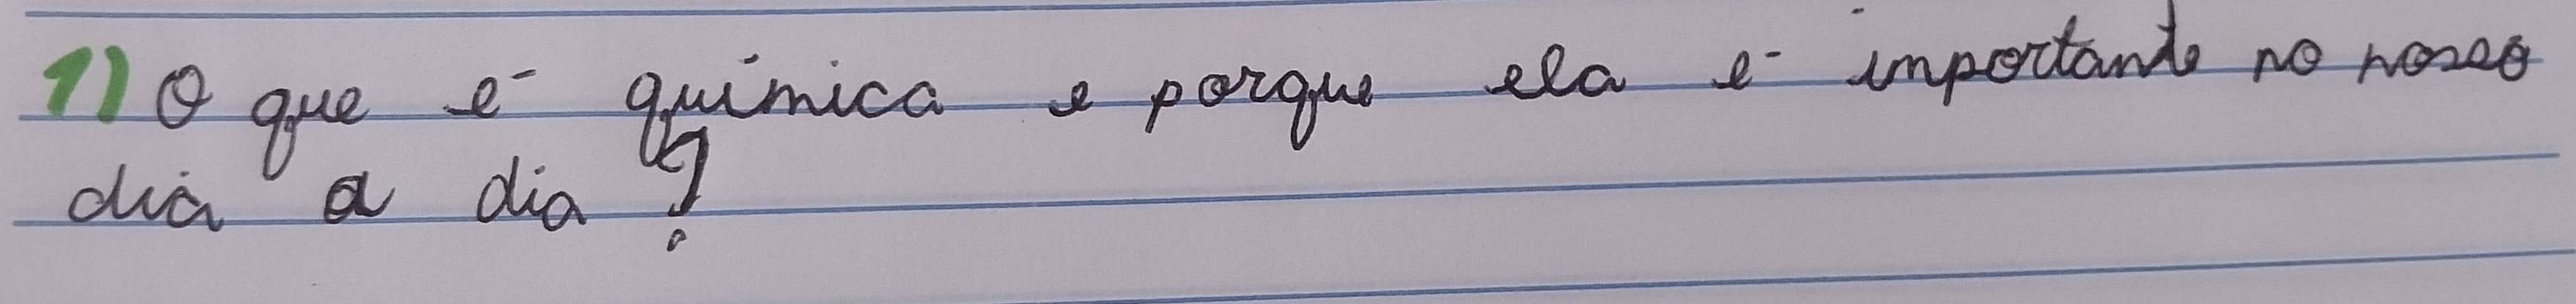 1) O que é química e porque ela é importante no nosso
dia a dia?